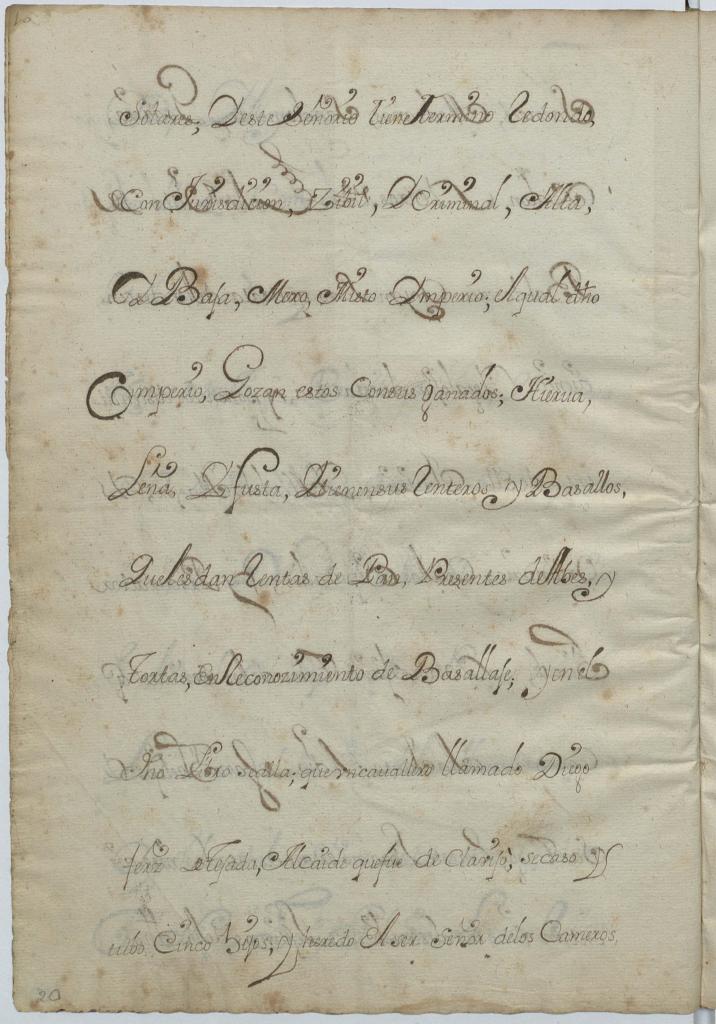 Solares; Deste Señorio tiene termino Redondo,
Con Jurisdicion, Zibil, Y Criminal, Alta,
Baja, Mero, Misto Ymperio; el qual dho
Ymperio, Gozan estos Consus ganados; Hierua,
Leña, Y fusta, Ytienensus Renteros y Basallos,
Queles dan Rentas de Pan, Presentes de Abes, y
Tortas, En Reconozimiento de Basallaje; yen el
dho Libro se alla; que vn cauallero llamado Diego
ferz de Tejada, Alcaide quefue de Clavijo, secaso Y
tubo Cinco hijos; y heredo Aser Señor delos Cameros,
20